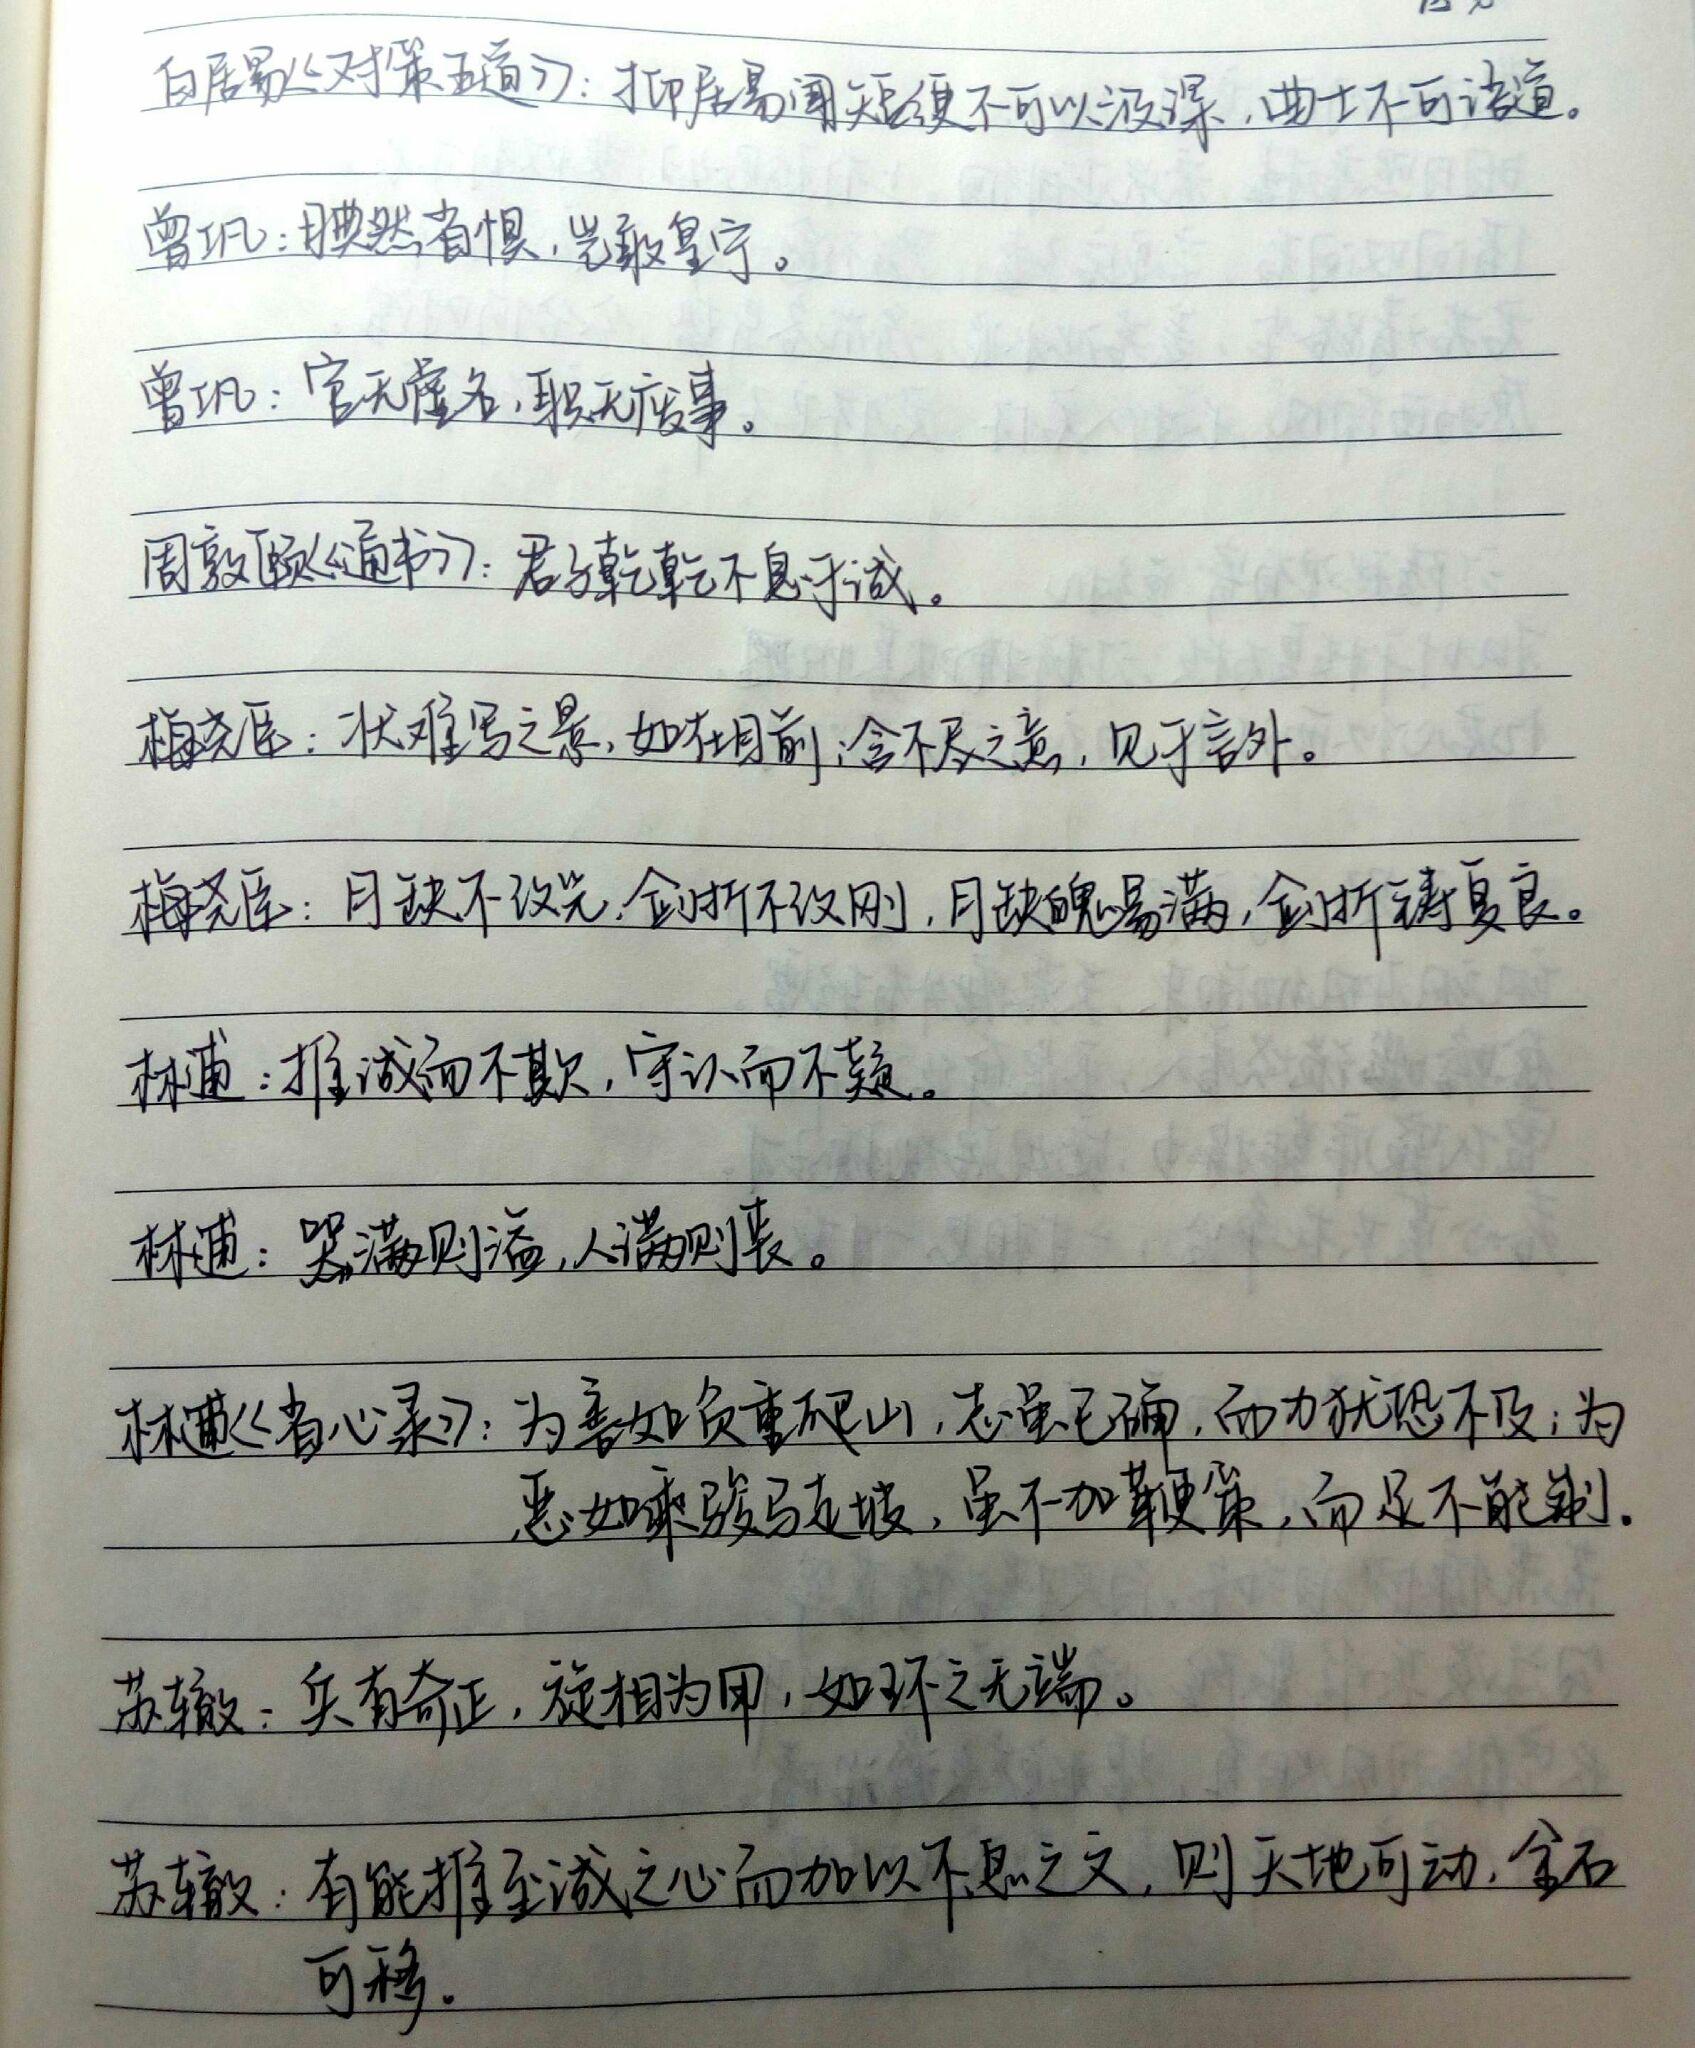 白居易《对策五道》：抑居易闻短绠不可以汲深，曲士不可语道。
曾巩：腆然省惧，岂敢皇宁。
曾巩：官无虚名，职无废事。
周敦颐《通书》：君子乾乾不息于诚。
梅尧臣：状难写之景，如在目前；含不尽之意，见于言外。
梅尧臣：月缺不改光，剑折不改刚，月缺魄易满，剑折铸复良。
林逋：推诚而不欺，守认而不疑。
林逋：器满则溢，人满则丧。
林逋《省心录》：为善如负重爬山，志虽已确，而力犹恐不及；为
恶如乘骏马走坡，虽不加鞭策，而足不能制。
苏辙：兵有奇正，旋相为用，如环之无端。
苏辙：有能推至诚之心而加以不息之文，则天地可动，金石
可移。